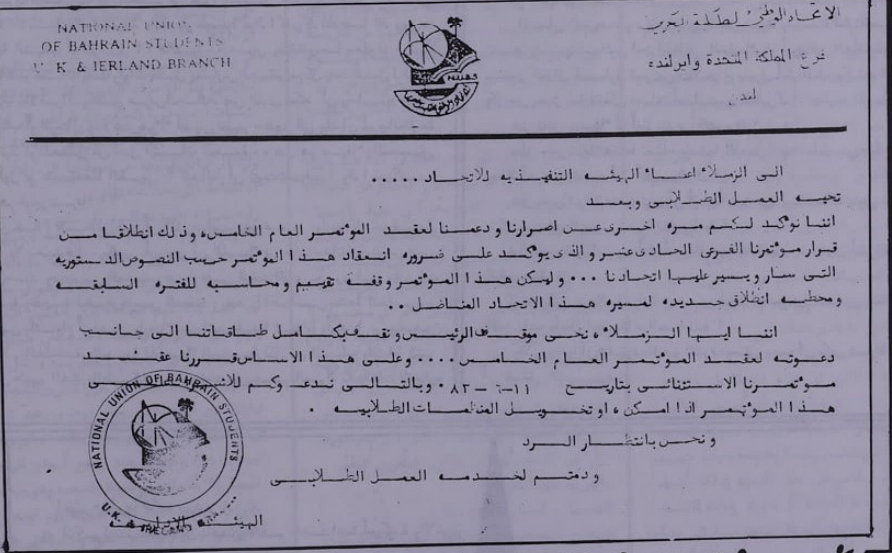 NATIONAL UNION
OF BAHRAIN STUDENTS
U. K. & IERLAND BRANCH
الاتحاد الوطني لطلبة البحرين
فرع المملكة المتحدة وايرلنده
لندن
N.U.B.S
الى الزملاء اعضاء الهيئه التنفيذيه للاتحاد .....
تحيه العمل الطلابي وبعد
اننا نؤكد لكم مره اخرى عن اصرارنا ودعمنا لعقد المؤتمر العام الخامس، وذلك انطلاقا من
قرار مؤتمرنا الفرعى الحادى عشر والذى يؤكد على ضروره انعقاد هذا المؤتمر حسب النصوص الدستوريه
التى سار ويسير عليها اتحادنا ... وليكن هذا المؤتمر وقفة تقييم ومحاسبه للفتره السابقه
ومحطه انطلاق جديده لمسيره هذا الاتحاد المناضل ..
اننا ايها الزملاء، نحى موقف الرئيس ونقف بكامل طاقاتنا الى جانب
دعوته لعقد المؤتمر العام الخامس .... وعلى هذا الاساس قررنا عقد
مؤتمرنا الاستثنائى بتاريخ ١١-٦-٨٢ . وبالتالى ندعوكم
هذا المؤتمر اذا امكن ، او تخويل المنظمات الطلابيه .
ونحن بانتظار الرد
ودمتم لخدمه العمل الطلابى
الهيئه الاداريه
NATIONAL UNION OF BAHRAIN STUDENTS
U.K. & IRELAND